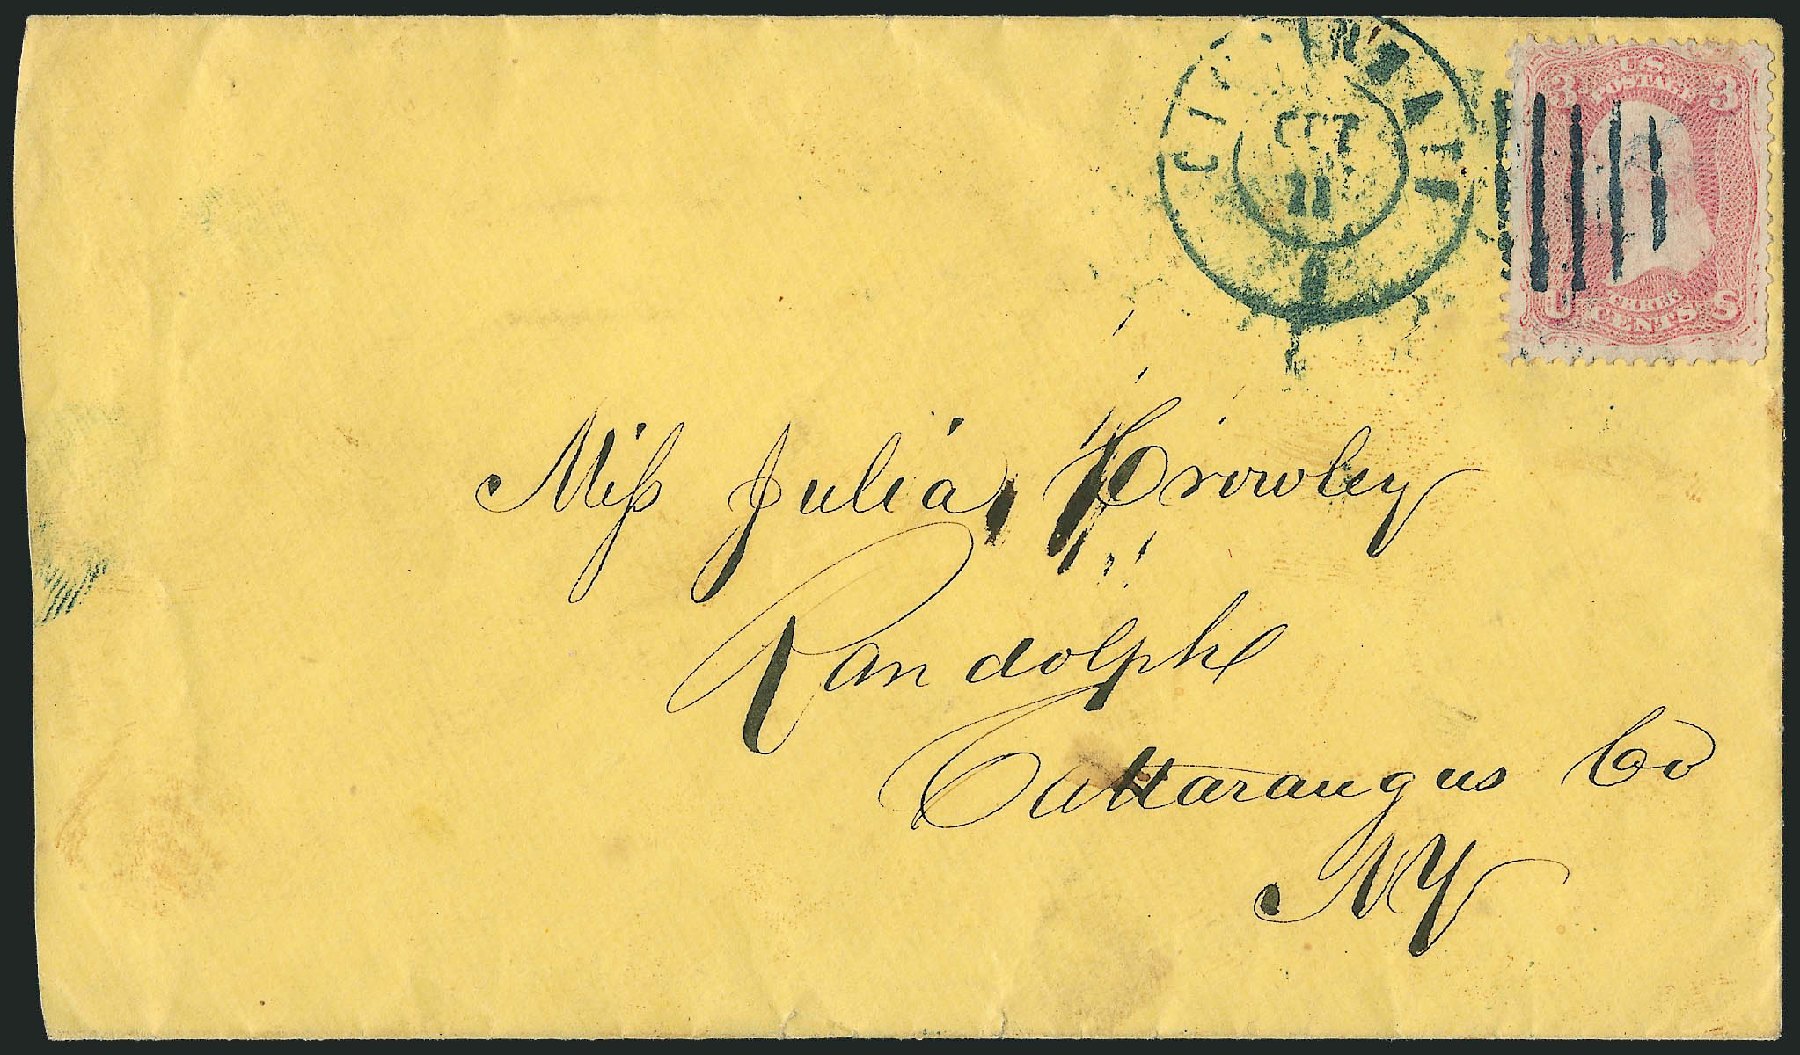 CINCINNATI
OCT
11
O
U.S.
3 POSTAGE 3
THREE
U CENTS S
Miss Julia Crowley
Randolph
Cattaraugus Co
NY